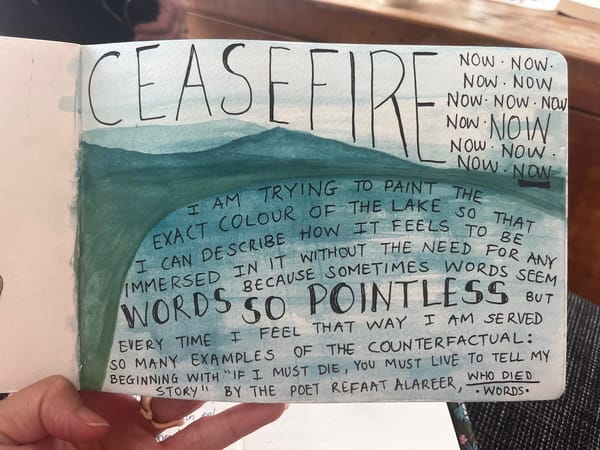 CEASEFIRE
NOW · NOW ·
NOW · NOW
NOW · NOW · NOW
NOW · NOW
NOW · NOW ·
NOW · NOW
I AM TRYING TO PAINT THE
EXACT COLOUR OF THE LAKE SO THAT
I CAN DESCRIBE HOW IT FEELS TO BE
IMMERSED IN IT WITHOUT THE NEED FOR ANY
WORDS BECAUSE SOMETIMES WORDS SEEM
SO POINTLESS BUT
EVERY TIME I FEEL THAT WAY I AM SERVED
SO MANY EXAMPLES OF THE COUNTERFACTUAL:
BEGINNING WITH "IF I MUST DIE, YOU MUST LIVE TO TELL MY
STORY" BY THE POET REFAAT ALAREER, WHO DIED
· WORDS ·